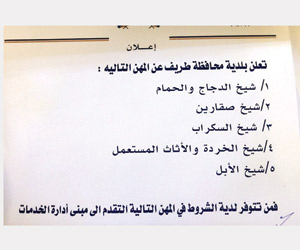 إعـلان
تعلن بلدية محافظة طريف عن المهن التاليه :
١/ شيخ الدجاج والحمام
٢/شيخ صقارين
٣/ شيخ السكراب
٤/شيخ الخردة والأثاث المستعمل
٥/شيخ الأبل
فمن تتوفر لدية الشروط في المهن التالية التقدم الى مبنى أدارة الخدمات